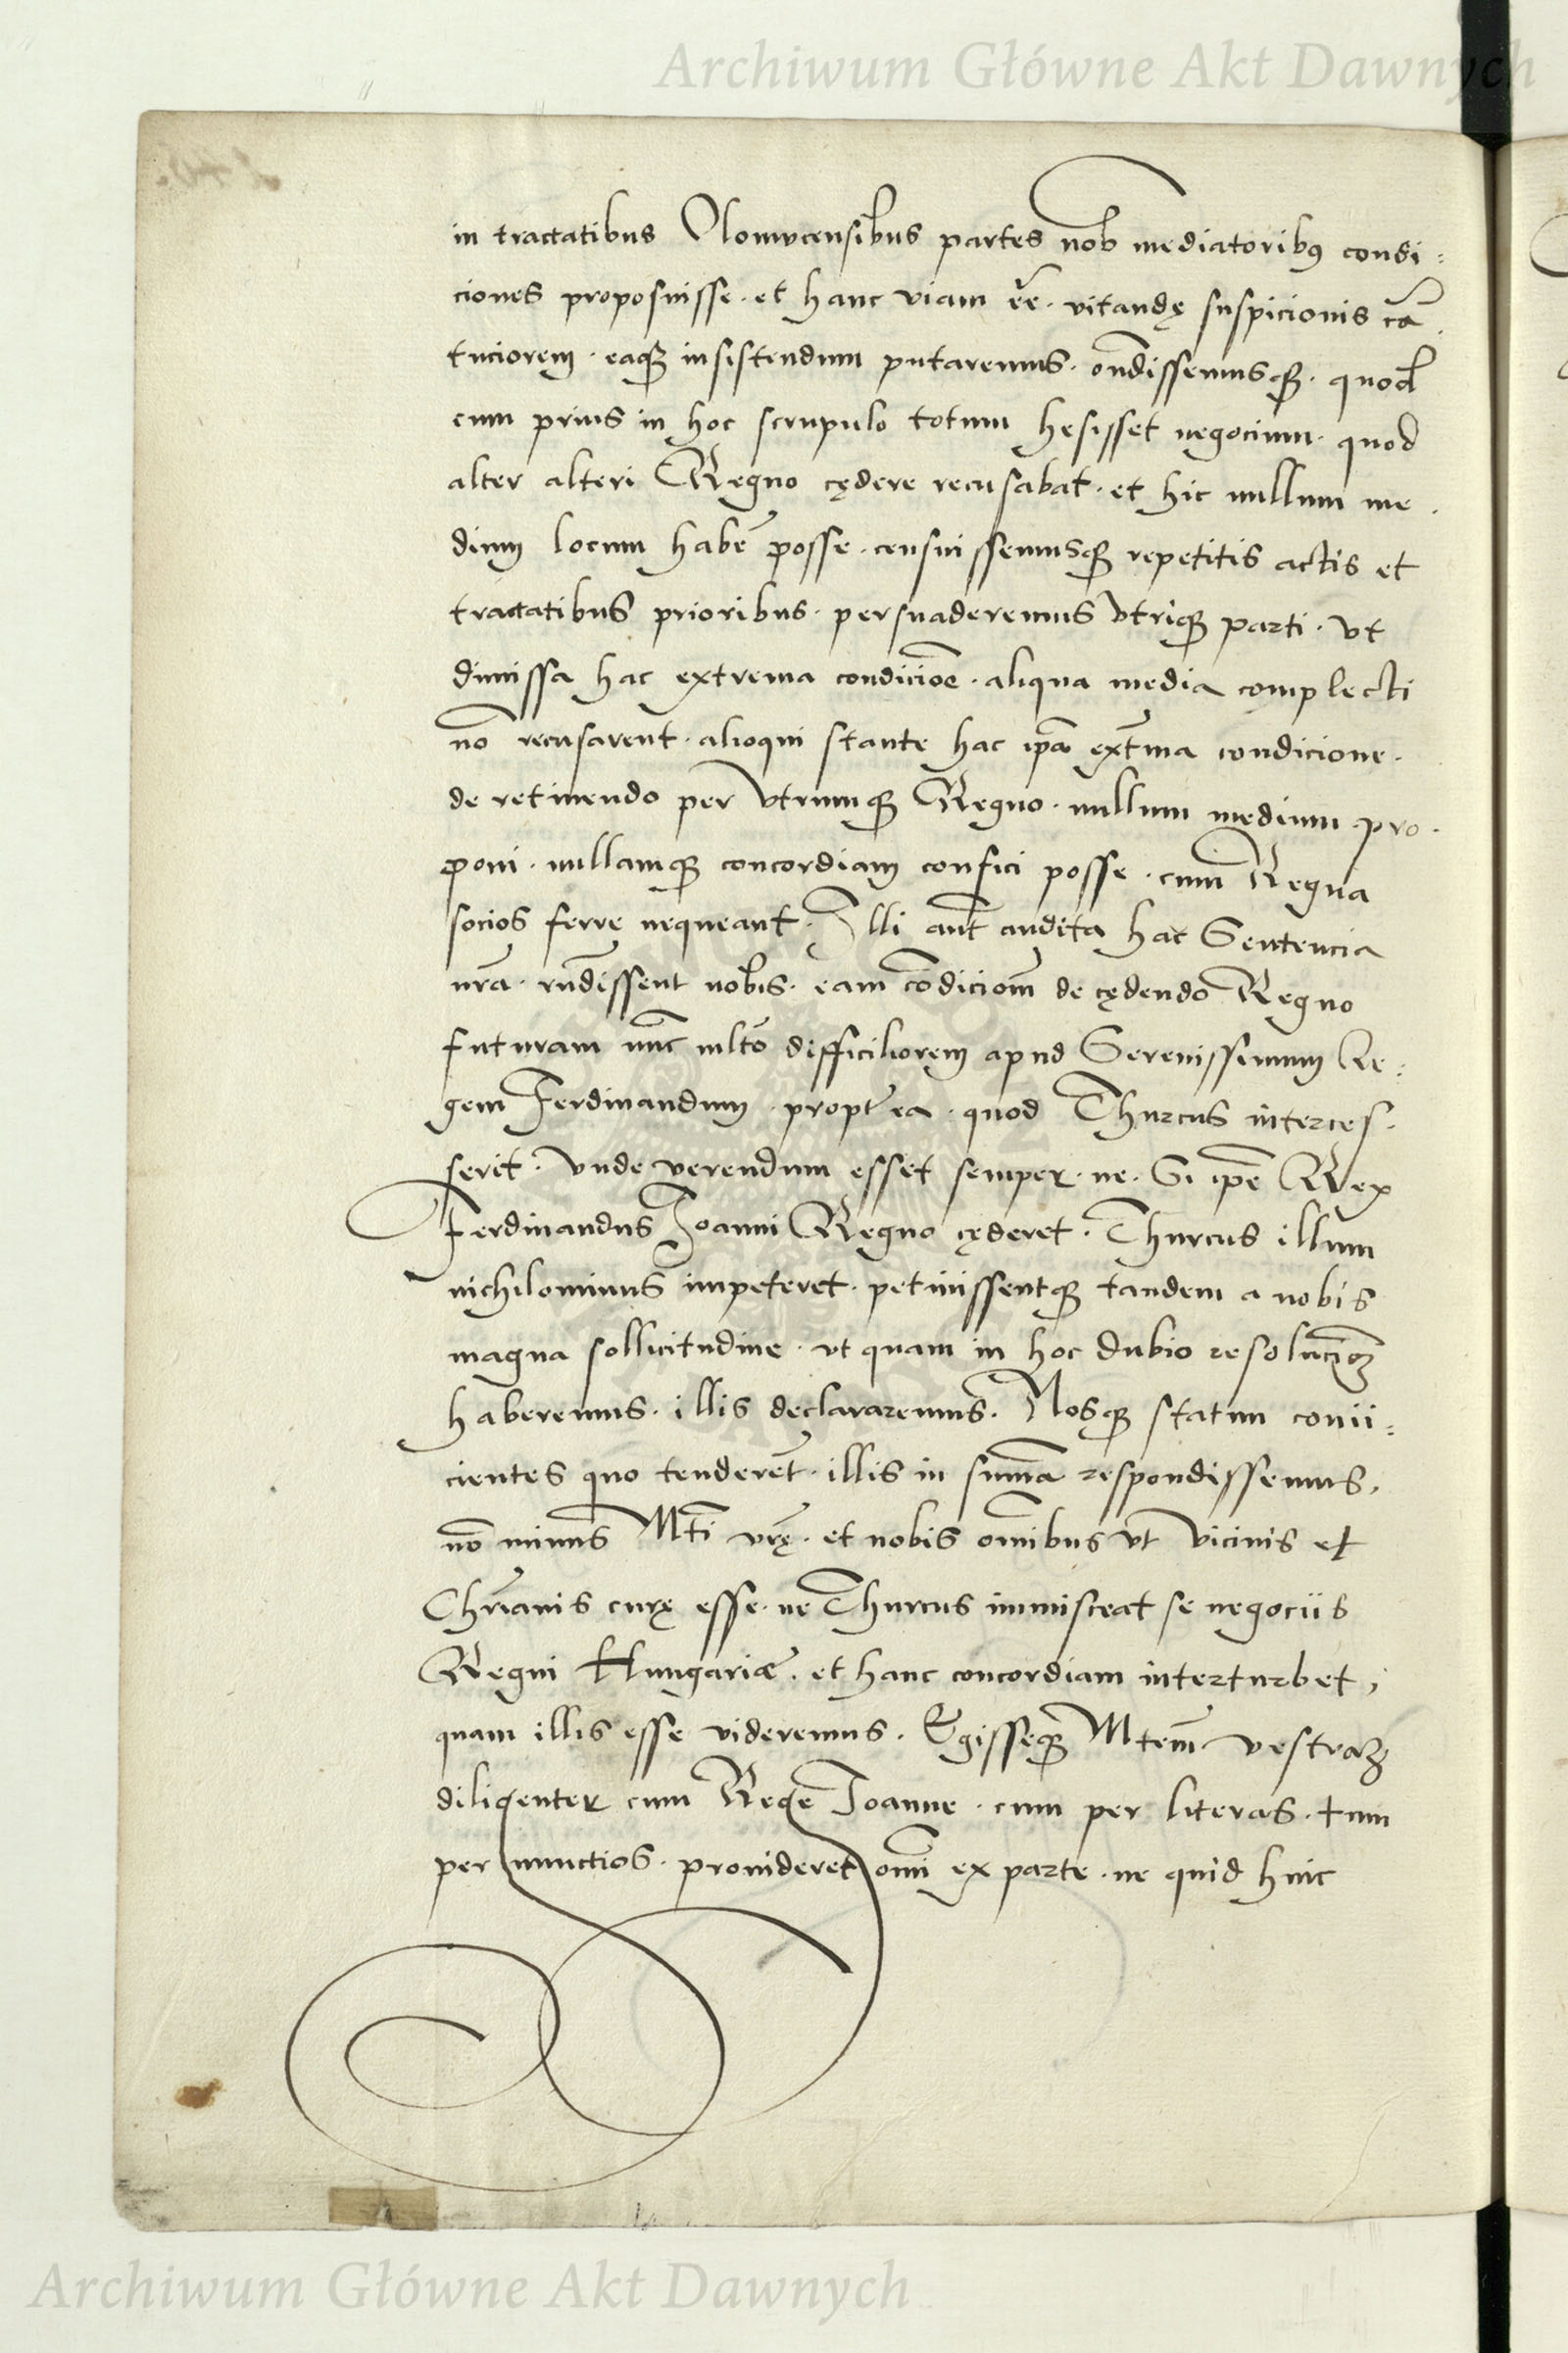 Archiwum Główne Akt Dawnych
in tractatibus Olomucensibus partes nob mediatoribꝰ condi:
ciones proposuisse · et hanc viam eē · vitandę suspicionis cā ·
tuciorem · eaqꝫ insistendum putaremus · ondissemusqꝫ · quod
cum prius in hoc scrupulo totum hesisset negocium · quod
alter alteri Regno cędere recusabat · et hic nullum me ·
dium locum habē posse · censuissemusqꝫ repetitis actis et
tractatibus prioribus · persuaderemus vtriqꝫ parti · vt
dimissa hac extrema condicioē · aliqua media complecti
nō recusarent · alioqui stante hac ipā extma condicione ·
de retinendo per vtrumqꝫ Regno · nullum medium pro ·
poni · nullamqꝫ concordiam confici posse · cum Regna
socios ferre nequeant · Illi aut audita hac Sentencia
nrā · rndissent nobis · eam cōdiciom de cędendo Regno
futuram nūc mltō difficiliorem apud Serenissimum Re:
gem Ferdinandum · propt ea · quod Thurcus interces ·
serit · vnde verendum esset semper · ne · Si ipē Rex
Ferdinandus Joanni Regno cęderet · Thurcus illum
nichilominus impeteret · petiuissentqꝫ tandem a nobis
magna sollicitudine · vt quam in hoc dubio resolucioꝫ
haberemus · illis declararemus · Nosqꝫ statim conii:
cientes quo tenderet · illis in sūma respondissemus,
nō minus Mti vrę · et nobis omibus vt vicinis et
Chrianis curę esse · ne Thurcus immisceat se negociis
Regni Hungariæ · et hanc concordiam interturbet;
quam illis esse videremus · Egisseqꝫ Mtem vestraꝫ
diligenter cum Rege Joanne · cum per literas · tum
per nunctios · prouideret omi ex parte · ne quid huic
Archiwum Główne Akt Dawnych